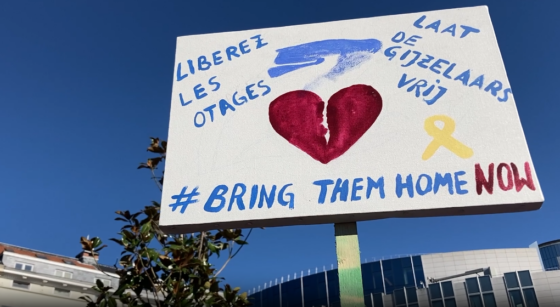 LIBEREZ
LES
OTAGES
LAAT
DE
GIJZELAARS
VRIJ
#BRING THEM HOME NOW